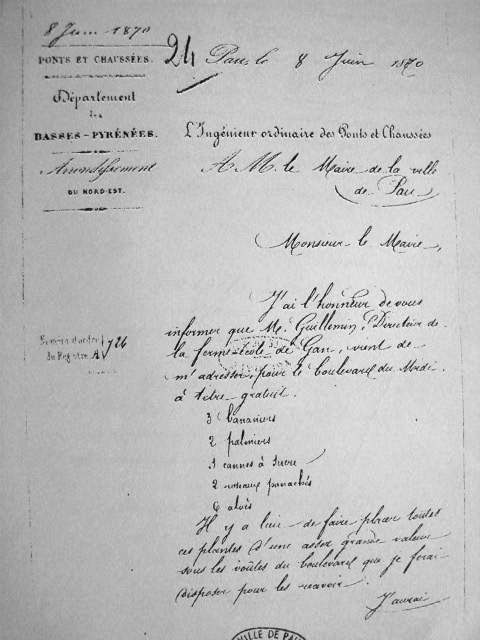 8 Juin 1870
PONTS ET CHAUSSÉES.
Département
des
BASSES-PYRÉNÉES.
Arrondissement
DU NORD-EST.
24
Pau, le 8 Juin 1870
L'Ingénieur ordinaire des Ponts et Chaussées
A M. le Maire de la ville
de Pau
Monsieur le Maire,
J'ai l'honneur de vous
informer que M. Guillemin, Directeur de
la ferme-école de Gan, vient de
m'adresser, pour le boulevard du Midi
à titre gratuit.
Numéro d'ordre
du Registre A
726
3 bananiers
2 palmiers
3 cannes à sucre
2 roseaux panachés
6 aloès
Il y a lieu de faire placer toutes
ces plantes d'une assez grande valeur
sous les voûtes du boulevard que je ferai
disposer pour les recevoir.
J'aurai
VILLE DE PAU